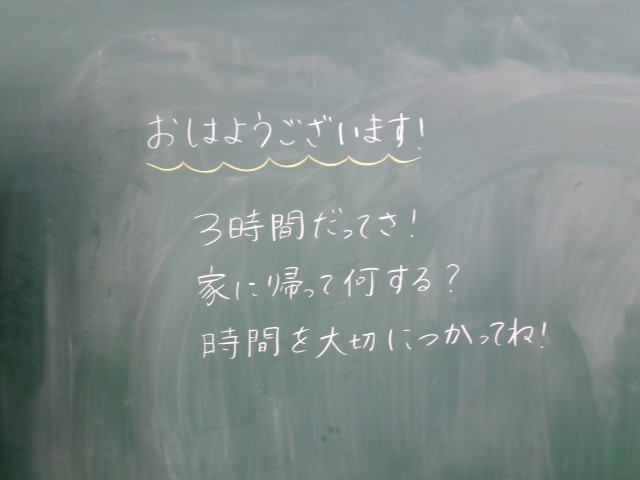 おはようございます!
3時間だってさ!
家に帰って何する?
時間を大切につかってね!